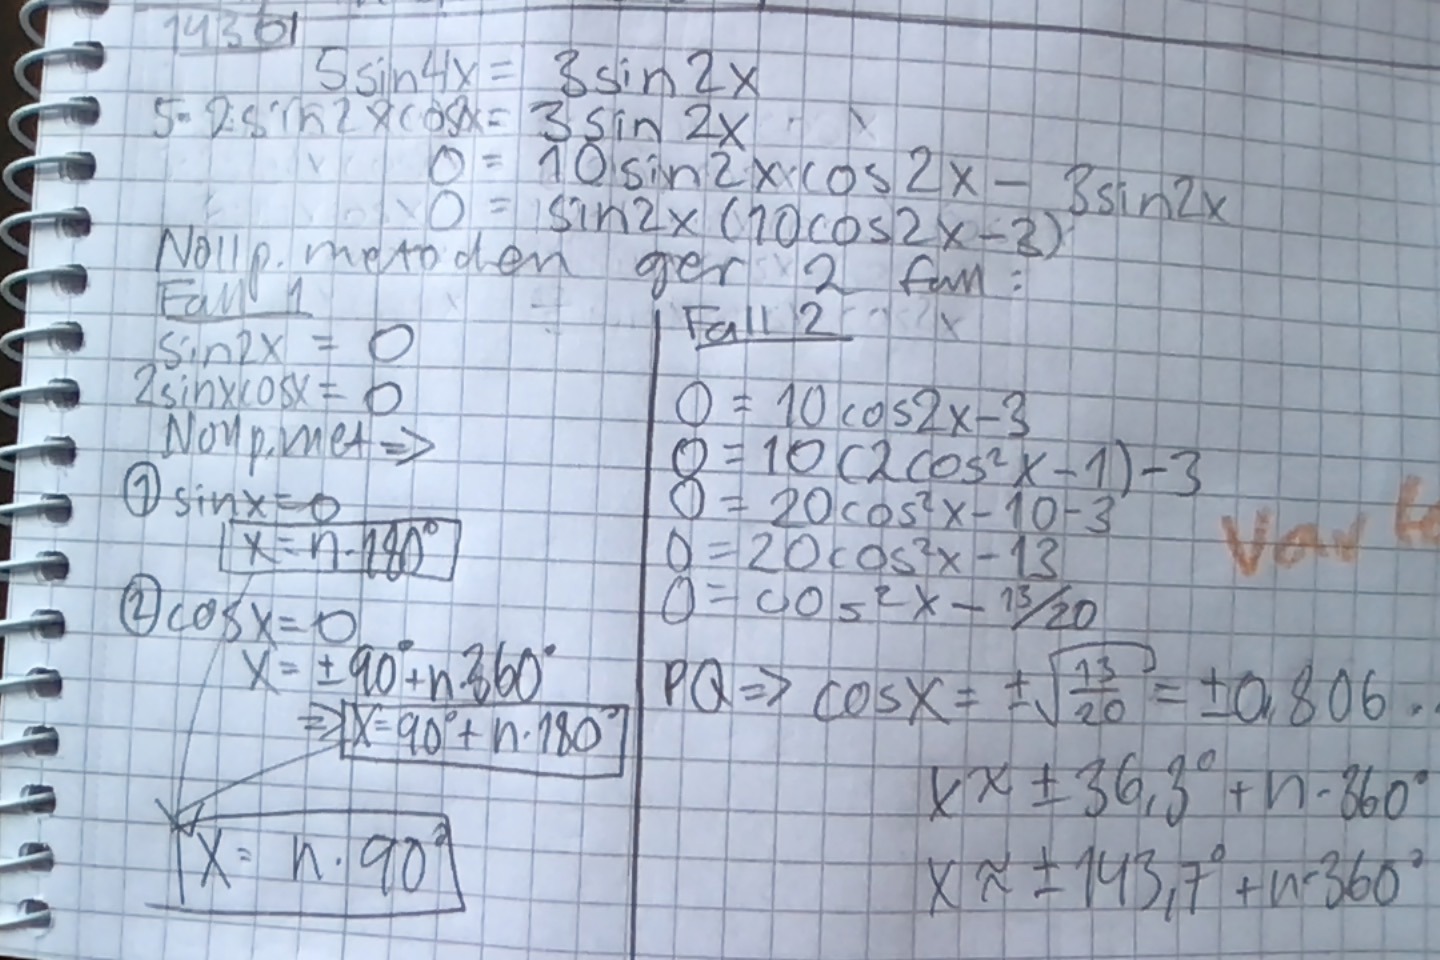 1436)
5sin4x = 3sin2x
5·2sin2xcos2x = 3sin2x
0 = 10sin2x·cos2x - 3sin2x
0 = sin2x(10cos2x-3)
Nollp.metoden ger 2 fall:
Fall 1
sin2x = 0
2sinxcosx = 0
Nollp.met =>
① sinx=0
x=n·180°
② cosx=0
x = ±90°+n·360°
=> x=90°+n·180°
x = n·90°
Fall 2
0 = 10cos2x-3
0 = 10(2cos²x-1)-3
0 = 20cos²x-10-3
0 = 20cos²x-13
0 = cos²x - 13/20
PQ => cosx = ±√13/20 = ±0,806..
x ≈ ±36,3° + n·360°
x ≈ ±143,7° + n·360°
Var